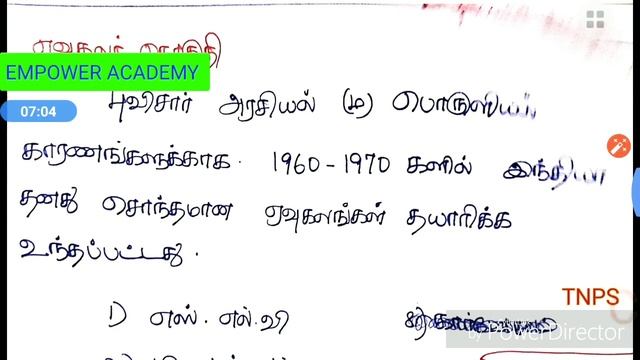 ஏவுகலர் தொகுதி
EMPOWER ACADEMY
புவிசார் அரசியல் (ம) பொருளியல்
07:04
காரணங்களுக்காக. 1960-1970 களில் இந்தியா
தனது சொந்தமான ஏவுகலங்கள் தயாரிக்க
உந்தப்பட்டது.
TNPS
1) எஸ். எல். வி
by PowerDirector